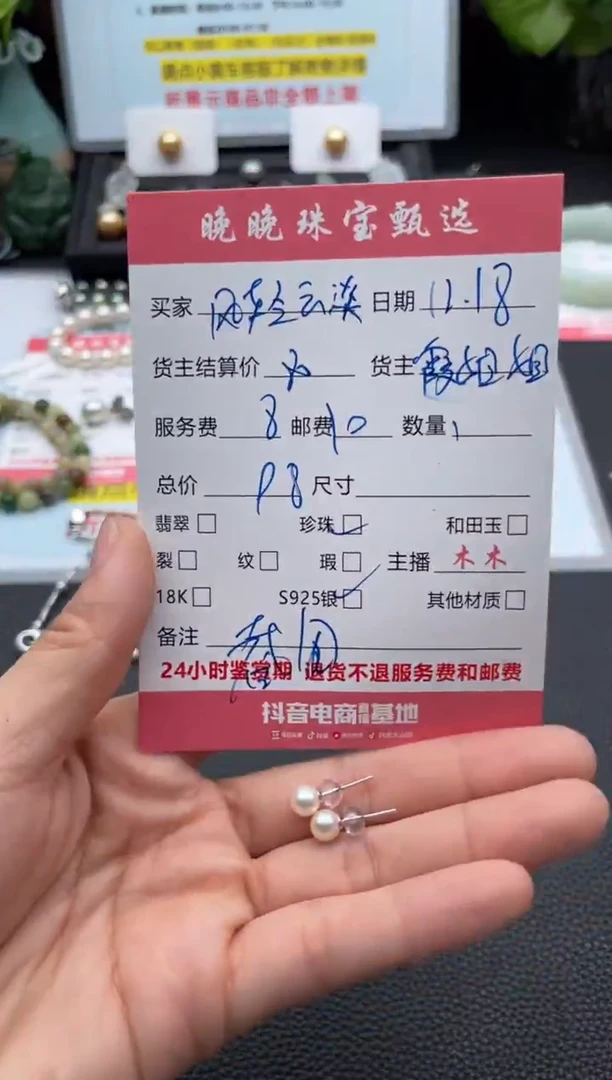 点击小黄车客服了解商品详情
所展示商品非全部上架
晚晚珠宝甄选
买家 风轻云淡 日期 12.18
货主结算价 货主 霞姐姐
服务费 8 邮费 10 数量 1
总价 98 尺寸
翡翠 珍珠 和田玉
裂 纹 瑕 主播 木木
18K S925银 其他材质
备注
24小时鉴赏期 退货不退服务费和邮费
抖音电商直播基地